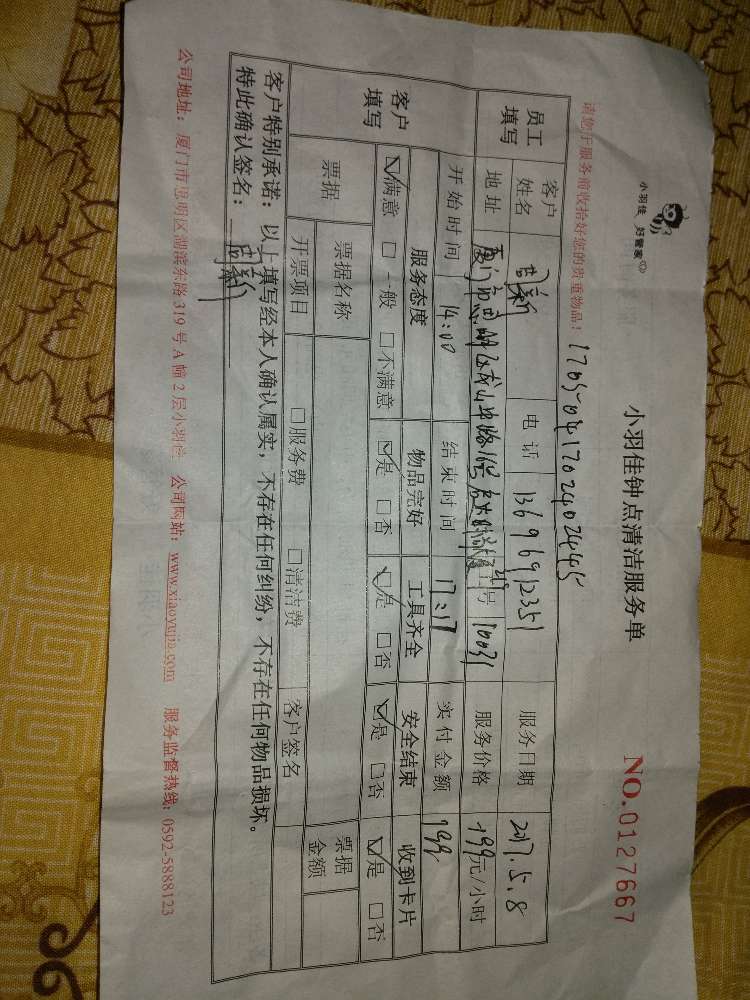 小羽佳 好管家
小羽佳钟点清洁服务单
NO.0127667
请您于服务前收拾好您的贵重物品！
170504170240244​5
员工填写 客户姓名 电话 13696912351 服务日期 2017.5.8
地址 厦门市思明区 号 10031 服务价格 199元/小时
开始时间 14:00 结束时间 17:17 实付金额 199
客户填写 服务态度 物品完好 工具齐全 安全结束 收到卡片
☑满意 □一般 □不满意 ☑是 □否 ☑是 □否 ☑是 □否 ☑是 □否
票据 票据名称 客户签名 票据金额
开票项目 □服务费 □清洁费
客户特别承诺：以上填写经本人确认属实，不存在任何纠纷，不存在任何物品损坏。
特此确认签名：
公司地址：厦门市思明区湖滨东路319号A幢2层小羽佳 公司网站：www.xiaoyujia.com 服务监督热线：0592-5888123